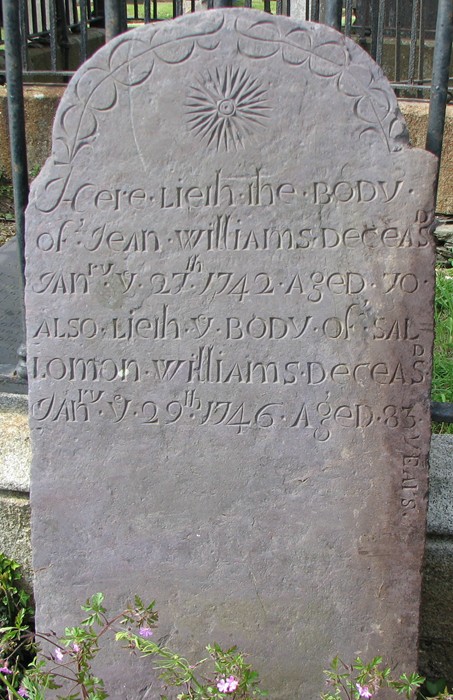 Here·Lieth·the·BODY·
of·Jean·Williams·Deceasᴰ
Janʳʸ·yᵉ·27ᵗʰ·1742·Aged·70·
Also·Lieth·yᵉ·BODY·of·Sal
lomon·Williams·Deceasᴰ
Janʳʸ·yᵉ·29ᵗʰ·1746·Aged·83·
years·